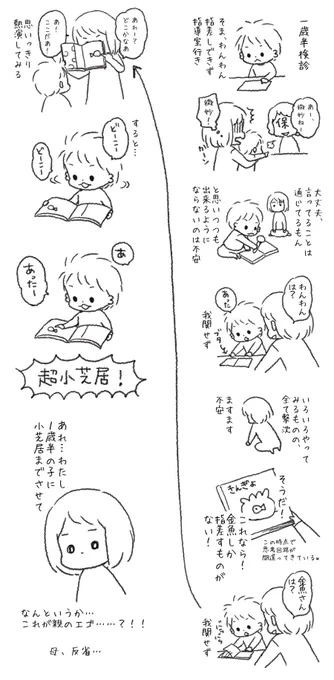 一歳半検診
そま、わんわん
指差しできず
指導室行き
あ！
微妙ねー
保
微妙！
ガーン
大丈夫、
言ってることは
通じてるもん
と思いつつも
出来るように
ならないのは不安
わんわん
は？
あった
ブタ
我関せず
いろいろやって
みるものの、
全て撃沈
ますます
不安
そうだ！
きんぎょ
これなら！
金魚しか
指差すものが
ない！
この時点で
思考回路が
間違ってきているw
金魚さん
は？
我関せず
あれー？
どこかなぁ
あ！
ここだぁー！
思いっきり
熱演してみる
すると…
どこー
どこー
あ
あったー
超小芝居！
あれ…わたし
1歳半の子に
小芝居までさせて
なんというか…
これが親のエゴ……？！！
母、反省…